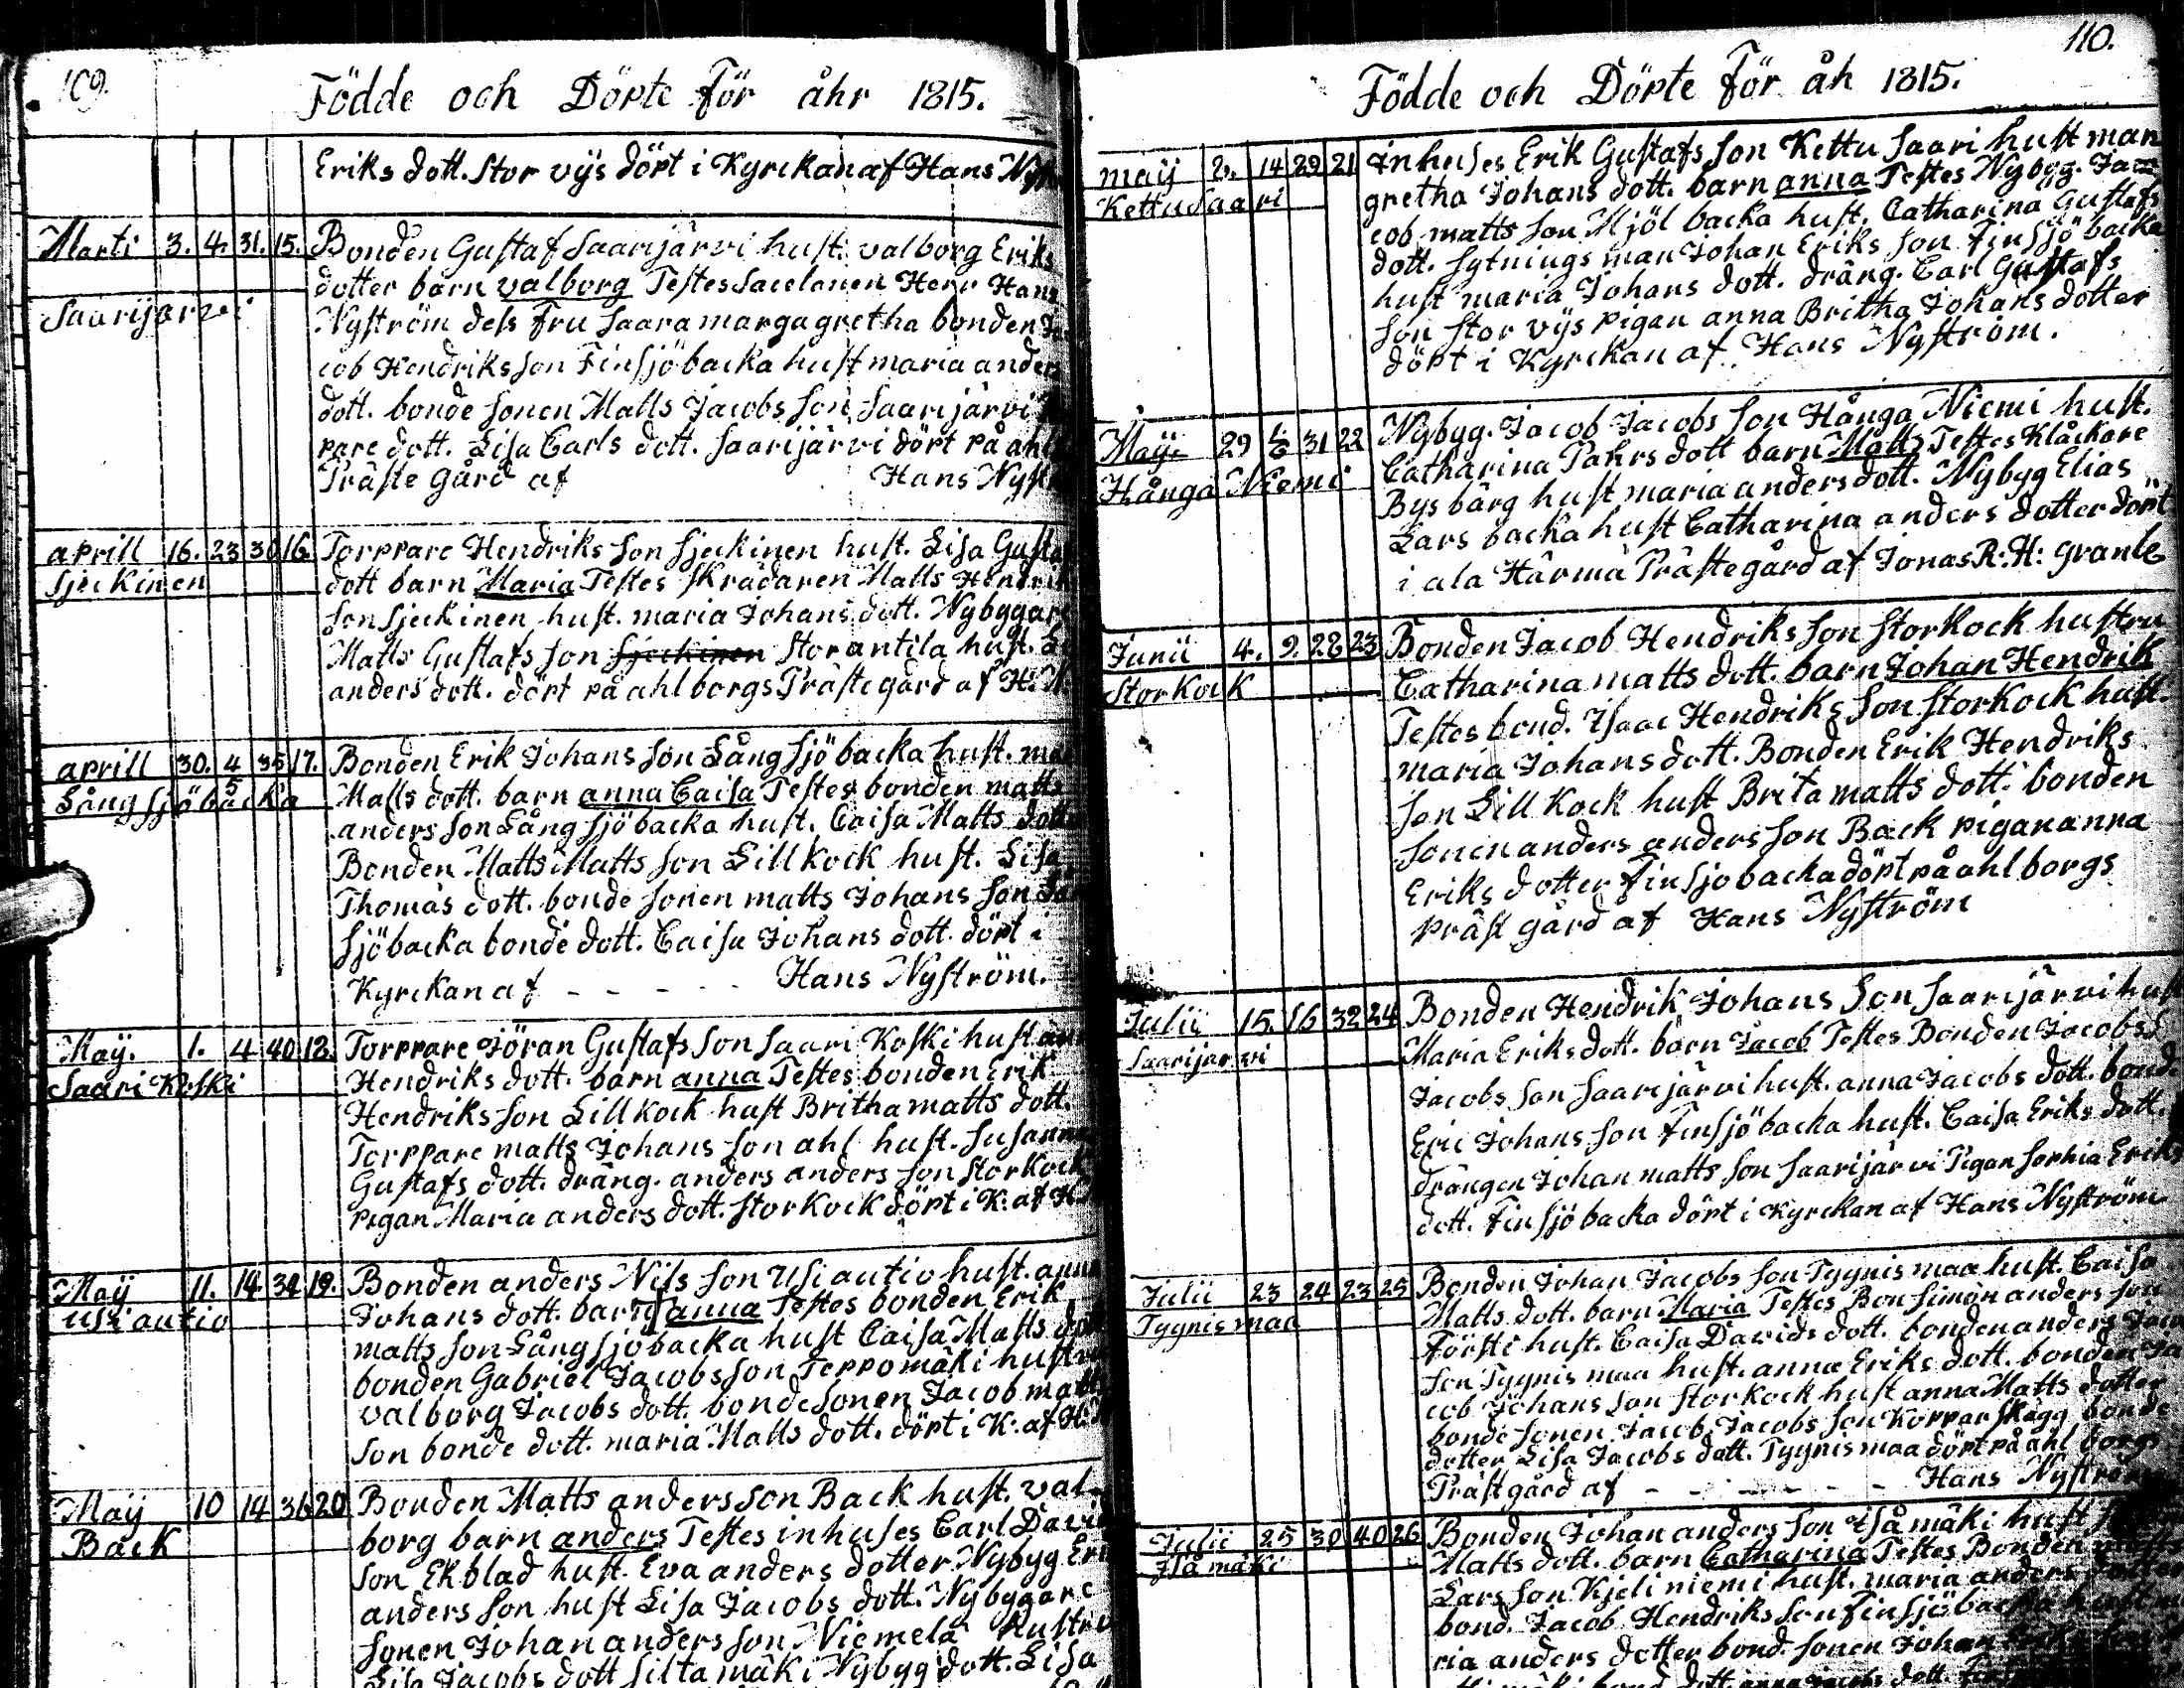 109.
Födde och Döpte för åhr 1815.
Eriks dott. Stor vijs döpt i Kyrckan af Hans
Marti 3. 4. 31. 15.
Saarijärvi
Bonden Gustaf Saarijärvi hust. valborg Eriks
dotter barn valborg Testes Sacelanen Herr Hans
Nyström dess Fru Saara margagretha bonden Ja
cob Hendriks son Finsjöbacka hust maria anders
dott. bonde sonen Matts Jacobs son Saarijärvi
pare dott. Lisa Carls dott. Saarijärvi döpt på ahl
Präste gård af Hans
aprill 16. 23 30 16.
Sjeckinen
Torppare Hendriks son Sjeckinen hust. Lisa
dott barn Maria Testes Skrädaren Matts Hendrik
son Sjeckinen hust. maria Johans dott. Nybygare
Matts Gustafs son Sjeckinen Storantila hust.
anders dott. döpt på ahlborgs Prästegård af H:
aprill 30. 4/5 35 17.
Långsjöbacka
Bonden Erik Johans son Långsjöbacka hust.
Matts dott. barn anna Caisa Testes bonden matts
anders son Långsjöbacka hust. Caisa Matts dott
Bonden Matts Matts son Lillkock hust. Lisa
Thomas dott. bonde sonen matts Johans son
sjöbacka bonde dott. Caisa Johans dott. döpt i
Kyrckan af - - - - - Hans Nyström.
May. 1. 4 40 18.
Saari Koski
Torppare Jöran Gustafs son Saari Koski hust
Hendriks dott. barn anna Testes bonden Erik
Hendriks son Lillkock hust Britha matts dott.
Torppare matts Johans son ahl hust. Susanna
Gustafs dott. dräng. anders anders son Storkock
pigan Maria anders dott. Storkock döpt i K: af
Maÿ 11. 14. 34 19.
Usiautio
Bonden anders Nils son Usiautio hust. anna
Johans dott. barn anna Testes bonden Erik
matts son Långsjöbacka hust Caisa Matts dott
bonden Gabriel Jacobs son Teppomäki hustru
valborg Jacobs dott. bonde sonen Jacob matts
son bonde dott. maria Matts dott. döpt i K: af H:
Maÿ 10 14 36 20
Back
Bonden Matts anders son Back hust. val-
borg barn anders Testes inhuses Carl David
son Ekblad hust. Eva anders dotter Nybyg. Erik
anders son hust Lisa Jacobs dott. Nybygare
sonen Johan anders son Niemelä hustru
Lisa Jacobs dott Siltamäki Nybyg dott. Lisa
110.
Födde och Döpte för åh 1815.
maij 2. 14 29 21
Kettusaari
Inhuses Erik Gustafs son Kettu Saari hust mar
gretha Johans dott. barn anna Testes Nybyg. Ja=
cob matts son Mjölbacka hust. Catharina Gustafs
dott. sytnings man Johan Eriks son Finsjöbacka
hust maria Johans dott. dräng. Carl Gustafs
son Stor vijs pigan anna Britha Johans dotter
döpt i Kyrckan af Hans Nyström.
Maÿ. 29 1/6 31 22
Hånga Niemi
Nybyg. Jacob Jacobs son Hånga Niemi hust.
Catharina Pahrs dott barn Matts Testes Klåckare
Bysbärg hust maria anders dott. Nybyg Elias
Larsbacka hust Catharina anders dotter döpt
i ala Härmä Prästegård af Jonas R: H: granle
Junii 4. 9. 28 23
Storkock
Bonden Jacob Hendriks son Storkock hustru
Catharina matts dott. barn Johan Hendrik
Testes bond. Isaac Hendriks son Storkock hust.
maria Johans dott. Bonden Erik Hendriks
son Lill Kock hust Brita matts dott. bonden
sonen anders anders son Back pigan anna
Eriks dotter Finsjobacka döpt på ahlborgs
präst gård af Hans Nyström
Julii 15. 16 32 24
Saarijarvi
Bonden Hendrik Johans son Saarijärvi hust
Maria Eriks dott. barn Jacob Testes Bonden Jacobs
Jacobs son Saarijärvi hust. anna Jacobs dott. bond.
Eric Johans son Finsjöbacka hust. Caisa Eriks dott.
drängen Johan matts son Saarijärvi Pigan Sophia Eriks
dott. Finsjöbacka döpt i Kyrckan af Hans Nyström
Julii 23 24 23 25
Tyynismaa
Bonden Johan Jacobs son Tyynis maa hust. Caisa
Matts dott. barn Maria Testes Bon Simon anders son
Försti hust. Caisa Davids dott. bonden anders
son Tyynis maa hust. anna Eriks dott. bonden Ja
cob Johans son Storkock hust anna Matts dotter
bonde sonen Jacob Jacobs son Korparskägg bonde
dotter Lisa Jacobs dott. Tyynismaa döpt på ahlborgs
Prästgård af - - - - - - Hans Nyström
Julii 25 30 40 26
Isåmäki
Bonden Johan anders son Isåmäki hust
Matts dott. barn Catharina Testes Bonden
Lars son Kjeliniemi hust. maria anders dotter
bond. Jacob Hendriks son Finsjöbacka hust
ria anders dotter bond. sonen Johan
bond dott anna Jacobs dott.